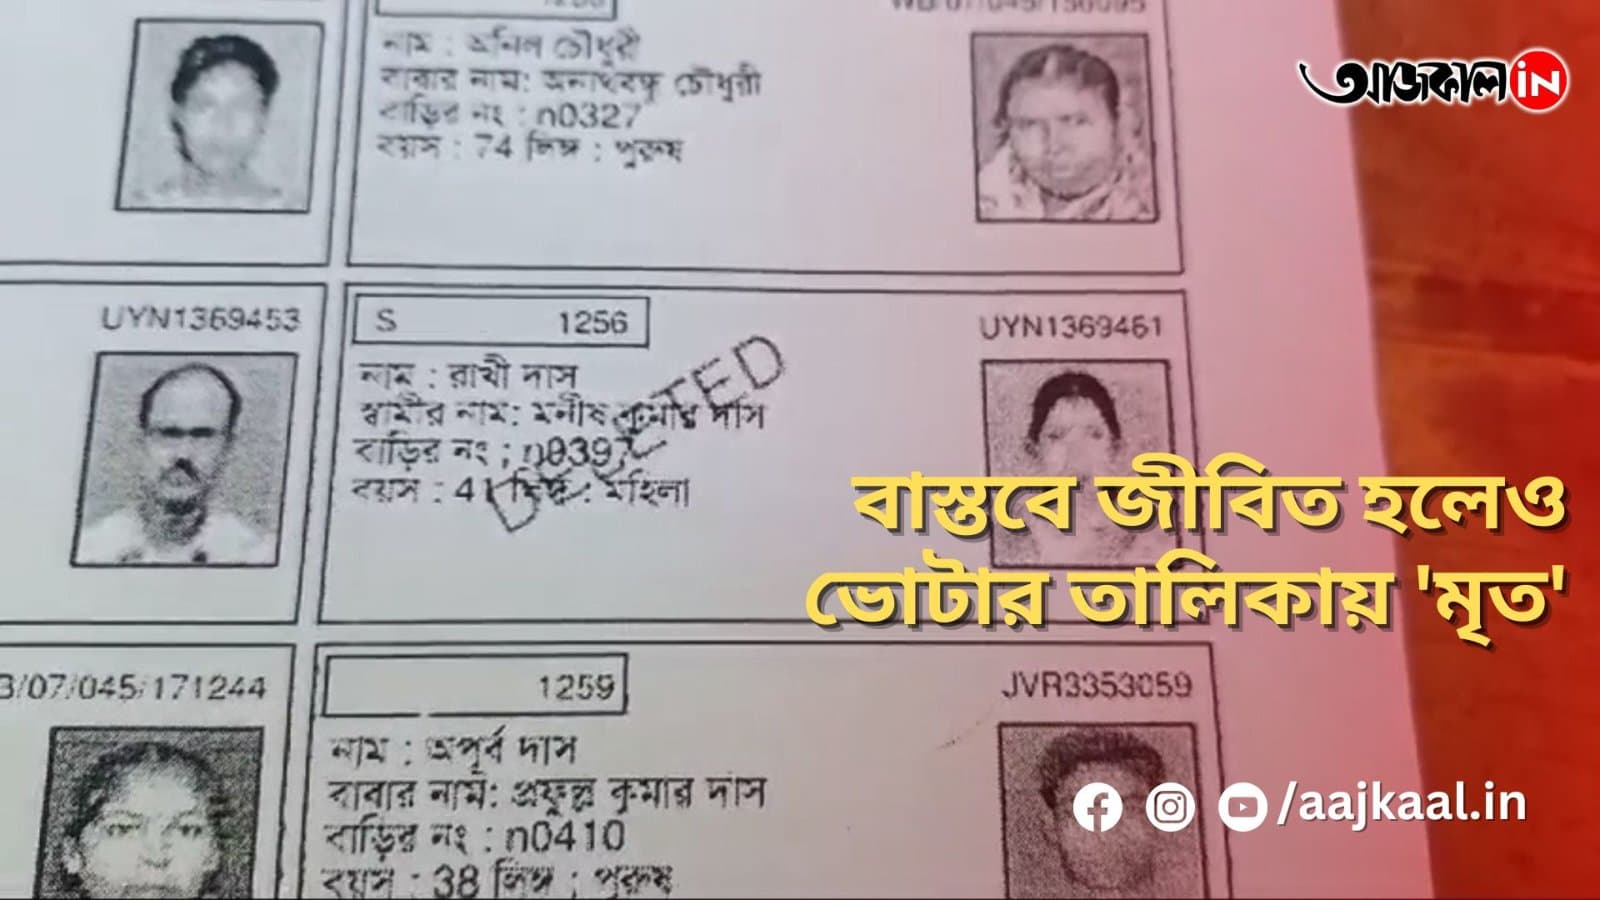 নাম : অনিল চৌধুরী
বাবার নাম: অনাথবন্ধু চৌধুরী
বাড়ির নং : n0327
বয়স : 74 লিঙ্গ : পুরুষ
আজকাল iN
UYN1369453
S 1256
UYN1369461
নাম : রাখী দাস
স্বামীর নাম: মনীষ কুমার দাস
বাড়ির নং : n0397
বয়স : 41 লিঙ্গ : মহিলা
DELETED
বাস্তবে জীবিত হলেও
ভোটার তালিকায় 'মৃত'
/07/045/171244
1259
JVR3353059
নাম : অপূর্ব দাস
বাবার নাম: প্রফুল্ল কুমার দাস
বাড়ির নং : n0410
বয়স : 38 লিঙ্গ : পুরুষ
/aajkaal.in